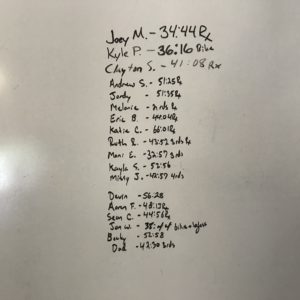 Joey M. - 34:44 Rx
Kyle P. - 36:16 Bike
Clayton S. - 41:08 Rx
Andrew S. - 51:25 Rx
Jordy - 51:35 Rx
Melanie - Rx
Eric B. - 44:04 Rx
Katie C. - 66:01 Rx
Ruth R. - 43:52 3rds Rx
Mani E. - 32:57 3rds
Kayla S. - 53:56
Missy J. - 42:57 4rds
Devin - 56:28
Aaron F. - 48:13 Rx
Sean C. - 44:56 Rx
Jon W. - 35: bike
Becky - 52:58
Dee - 42:30 3rds